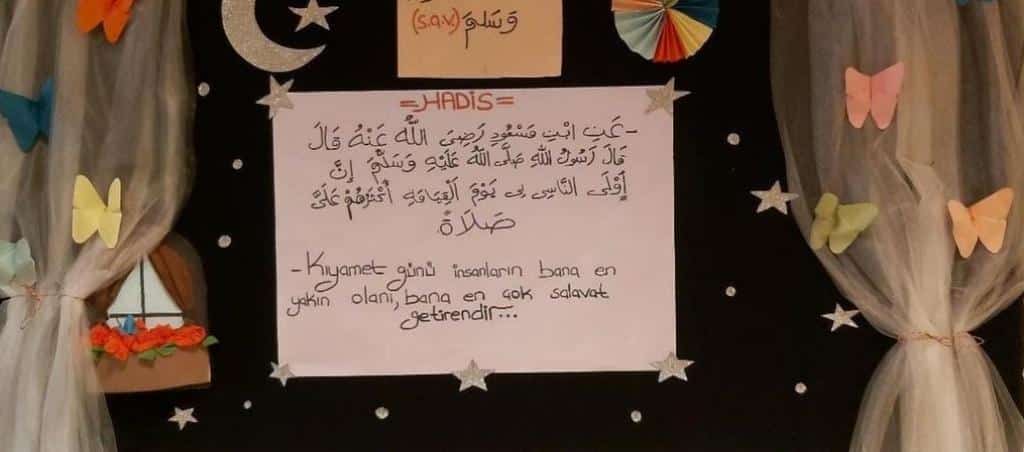 وَسَلَّمَ (s.a.v)
=HADİS=
- عَنِ ابْنِ مَسْعُودٍ رَضِيَ اللَّهُ عَنْهُ قَالَ
قَالَ رَسُولُ اللهِ صَلَّى اللهُ عَلَيْهِ وَسَلَّمَ إِنَّ
أَوْلَى النَّاسِ بِي يَوْمَ الْقِيَامَةِ أَكْثَرُهُمْ عَلَيَّ
صَلَاةً
- Kıyamet günü insanların bana en
yakın olanı, bana en çok salavat
getirendir...